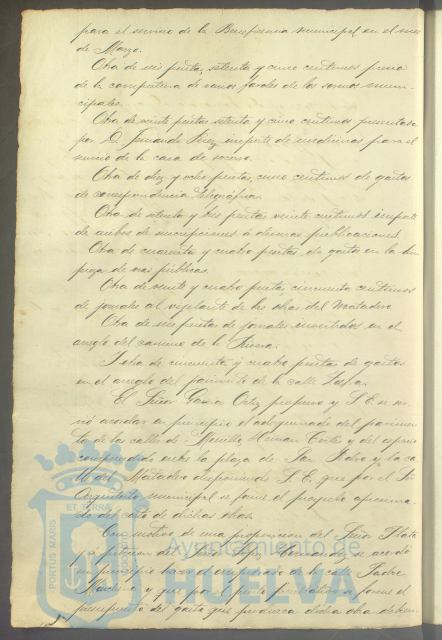 para el servicio de la Beneficencia municipal en el mes
de Marzo.
Otra de mil pesetas, setenta y cinco centimos
de la compostura de varios faroles de los serenos muni-
cipales.
Otra de veinte pesetas setenta y cinco centimos presentada
por D. Fernando Perez importe de medicinas para el
servicio de la casa de socorro.
Otra de diez y ocho pesetas, cinco centimos de gastos
de correspondencia telegráfica.
Otra de setenta y tres pesetas veinte centimos importe
de suscripciones á diversas publicaciones.
Otra de cuarenta y cuatro pesetas de gastos en la lim-
pieza de vias públicas.
Otra de veinte y cuatro pesetas cincuenta centimos
de jornales al vigilante de las obras del Matadero
Otra de pesetas de jornales invertidos en el
arreglo del camino de la
Y otra de cincuenta y cuatro pesetas de gastos
en el arreglo del pavimento de la calle
El Señor Garcia Ortiz propuso y S. E. se ser-
vió acordar en principio el adoquinado del pavimen-
to de las calles de Hernan Cortés y del espacio
comprendido entre la plaza de San Pedro y la ca-
lle del Matadero disponiendo S. E. que por el Sr.
Arquitecto municipal se forme el proyecto
de dichas obras.
Con motivo de una proposicion del Señor Plata
y á peticion del Señor Lopez se acordó
en principio hacer el empedrado de la calle Padre
Marchena y que por el perito se forme el
presupuesto del gasto que produzca dicha obra
PORTUS MARIS
ET TERRAE
Ayuntamiento de
HUELVA